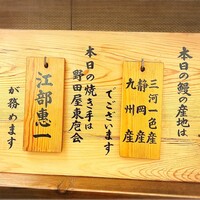 本日の鰻の産地は
三河一色産
静岡産
九州産
でございます
本日の焼き手は
野田屋東庖会
江部恵一
が務めます